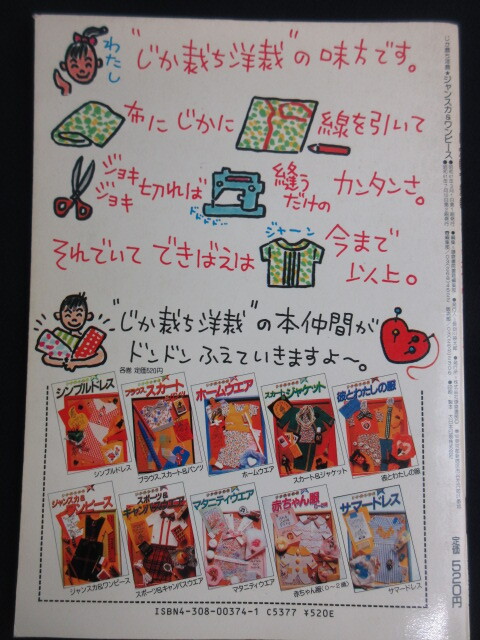 わたし
"じか裁ち洋裁"の味方です。
布にじかに 線を引いて
ジョキジョキ切れば ドドドド… 縫うだけの カンタンさ。
ジャーン
それでいて できばえは 今まで以上。
"じか裁ち洋裁"の本仲間が
ドンドンふえていきますよ〜。
各巻 定価520円
シンプルドレス
ブラウス、スカート&パンツ
ホームウエア
スカート&ジャケット
彼とわたしの服
シンプルドレス
ブラウス、スカート&パンツ
ホームウエア
スカート&ジャケット
彼とわたしの服
ジャンスカ&ワンピース
スポーツ&キャンパスウエア
マタニティウエア
赤ちゃん服
サマードレス
ジャンスカ&ワンピース
スポーツ&キャンパスウエア
マタニティウエア
赤ちゃん服(0〜2歳)
サマードレス
ISBN4-308-00374-1 C5377 ¥520E
じか裁ち洋裁●ジャンスカ&ワンピース
定価 520円